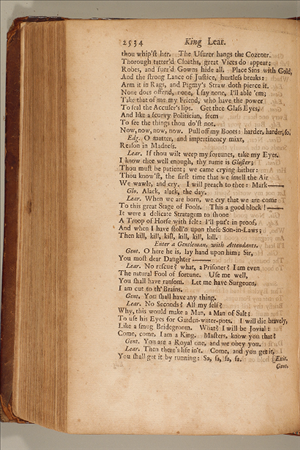 2534 King Lear.
thou whip'st her. The Usurer hangs the Cozener.
Thorough tatter'd Cloaths, great Vices do appear:
Robes, and Furr'd Gowns hide all. Place Sins with Gold,
And the strong Lance of Justice, hurtless breaks:
Arm it in Rags, and Pigmy's Straw doth pierce it.
None does offend, none, I say none, I'll able 'em;
Take that of me my Friend, who have the power
To seal the Accuser's lips. Get thee Glass Eyes,
And like a scurvy Politician, seem
To see the things thou do'st not.
Now, now, now, now. Pull off my Boots: harder, harder, so.
Edg. O matter, and impertinency mixt,
Reason in Madness.
Lear. If thou wilt weep my fortunes, take my Eyes.
I know thee well enough, thy name is Gloster;
Thou must be patient; we came crying hither:
Thou know'st, the first time that we smell the Air
We wawle, and cry. I will preach to thee: Mark——
Glo. Alack, alack, the day.
Lear. When we are born, we cry that we are come
To this great Stage of Fools. This a good block!——
It were a delicate Stratagem to shooe
A Troop of Horse with felt: I'll put't in proof,
And when I have stoll'n upon these Son-in-Laws;
Then kill, kill, kill, kill, kill, kill.
Enter a Gentleman, with Attendants.
Gent. O here he is, lay hand upon him; Sir,
You most dear Daughter——
Lear. No rescue? what, a Prisoner? I am even
The natural Fool of fortune. Use me well,
You shall have ransom. Let me have Surgeons,
I am cut to th' Brains.
Gent. You shall have any thing.
Lear. No Seconds? All my self?
Why, this would make a Man, a Man of Salt;
To use his Eyes for Garden-water-pots. I will die bravely,
Like a smug Bridegroom. What? I will be Jovial:
Come, come, I am a King. Masters, know you that?
Gent. You are a Royal one, and we obey you.
Lear. Then there's life in't. Come, and you get it,
You shall get it by running: Sa, sa, sa, sa. [Exit.
Gent.